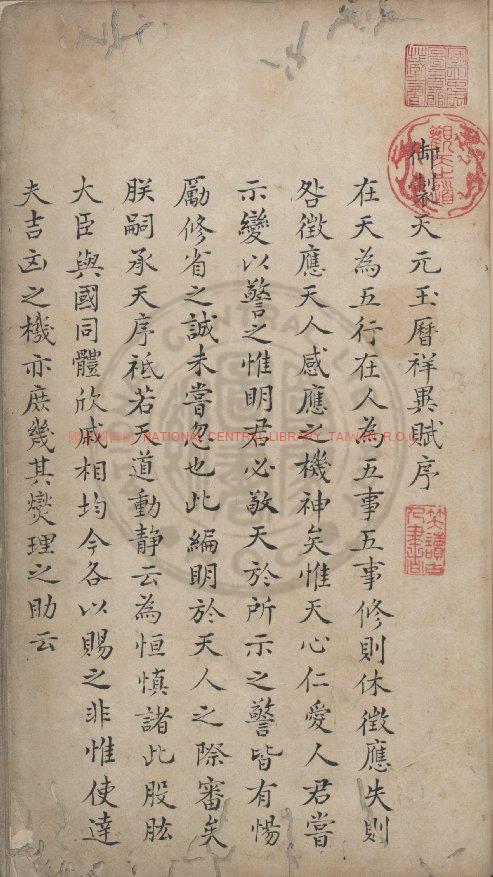 御製天元玉曆祥異賦序
在天為五行在人為五事五事修則休徵應失則
咎徵應天人感應之機神矣惟天心仁愛人君嘗
示變以警之惟明君必敬天於所示之警皆有惕
勵修省之誠未嘗忽也此編明於天人之際審矣
朕嗣承天序祗若天道動靜云為恒慎諸此股肱
大臣與國同體欣戚相均今各以賜之非惟使達
夫吉凶之機亦庶幾其爕理之助云
國家圖書館 NATIONAL CENTRAL LIBRARY, TAIWAN, R.O.C.